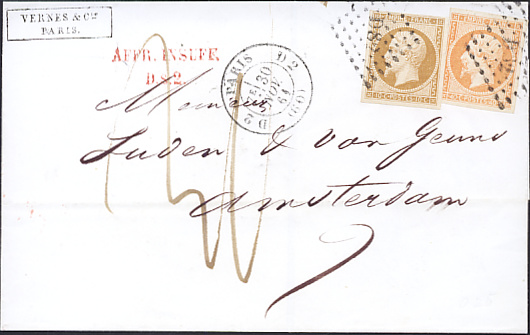 VERNES & Cie
PARIS.
AFFR. INSUFF.
D.S.2.
PARIS D2 (60) D2
30
61
FRANC
10 C POSTES 10 C
FRANC
POSTES
Monsieur
Luden & van Geuns
Amsterdam